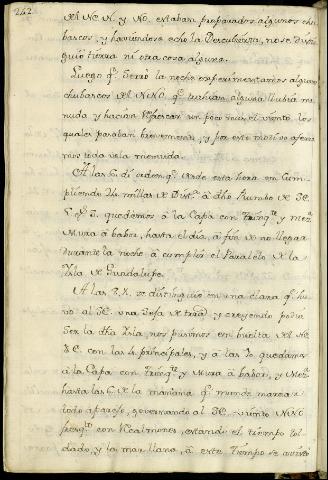 242
del NE. N. y NO. estaban preparados algunos chu-
bascos, y haviendose echo la Descubierta, no se distin-
guió tierra ni otra cosa alguna.
Luego qe. cerró la noche experimentamos algunos
chubascos del NNO. qe. trahian alguna llubia me-
nuda y hacian refrescar un poco mas el viento, los
quales pasaban brevemente, y por este motivo aferra-
mos toda vela menuda.
A las 6 dí orden qe. desde esta hora en cum-
pliendo 24 millas de Dista. á dho Rumbo de SE.
quedemos á la Capa con Trinqte. y Mezna.
Mura á babor, hasta el dia, á fin de no llegar
durante la noche á cumplir el Paralelo de la
Ysla de Guadalupe.
A las se distinguió en una clara qe. hu-
vo al SE. una de tierra y creyendo podia
ser la dha Ysla, nos pusimos en buelta del NE
con las 4 principales, y á las 10 quedamos
á la Capa con Trinqte. y Mura á babor, y Mezna.
hasta las 6 de la mañana qe. mande marear
todo aparejo, governando al SE. viento NNO
fresqto. con Ventolinas, estando el tiempo tol-
dado, y la mar llana, á este tiempo se avistó